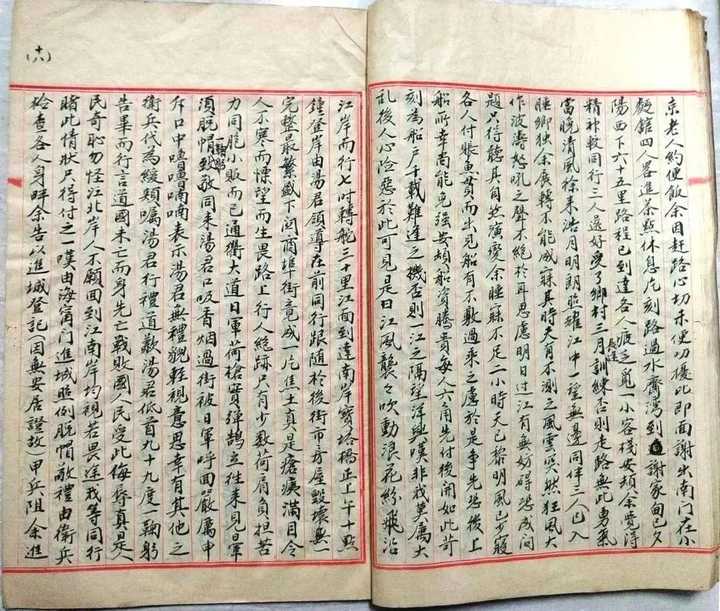 京老人約便飯余因趕路心切未便叨擾此即面謝出南門在小
麪館四人畧進茶點休息片刻路過水齊灣到謝家甸已夕
陽西下六十五里路程已到達各人疲乏覓一小客棧安頓余覺得
精神較同行三人還好受了鄉村三月長途訓練否則走路無此勇氣
當晚清風徐來浩月明朗照耀江中一望無邊同伴三人已入
睡鄉独余展轉不能成寐其時天有不測之風雲突然狂風大
作波濤怒吼之聲不絕於耳思慮明日过江有無妨碍恐成问
題只得聽其自然演變余睡寐不足二小時天已黎明風已少寢
各人付賬魚貫而出見船有不敷過乘之虞於是爭先恐後上
船所幸尚能免強安頓船資騰貴每人六角先付後開如此苛
刻為船户千載難逢之機否則一江之隔望洋興嘆非我莫属大
乱後人心險惡於此可見是日江風襲々吹動浪花紛飛沿
(十八)
江岸而行七时轉舵三十里江面到達南岸寶塔橋正上午十點
鐘登岸由湯君領導在前同行跟随於後街市房屋毀壞無一
完整最繁盛下関商埠街竟成一片焦土真是瘡痍滿目令
人不寒而慄望而生畏路上行人絕跡只有少数荷肩負担苦
力同肥小販而已通衢大道日軍荷槍實彈鵠立往來見日軍
須脫帽鞠躬致敬同来湯君口吸香烟過街被日軍呼回嚴厲申
斥口中嚕嚕喃喃表示湯君無禮貌輕視意思幸有其他之
衛兵代為緩頰嘱湯君行禮道歉湯君低首九十九度一鞠躬
告畢而行言道國未亡而身先亡戰敗國人民受此侮辱真是人
民奇恥勿怪江北岸人不願回到江南岸均視若畏途我等同行
睹此情状只得付之一嘆由海甯门進城照例脫帽敬禮由衛兵
檢查各人身畔余告以進城登記(因無安居證故)甲兵阻余進